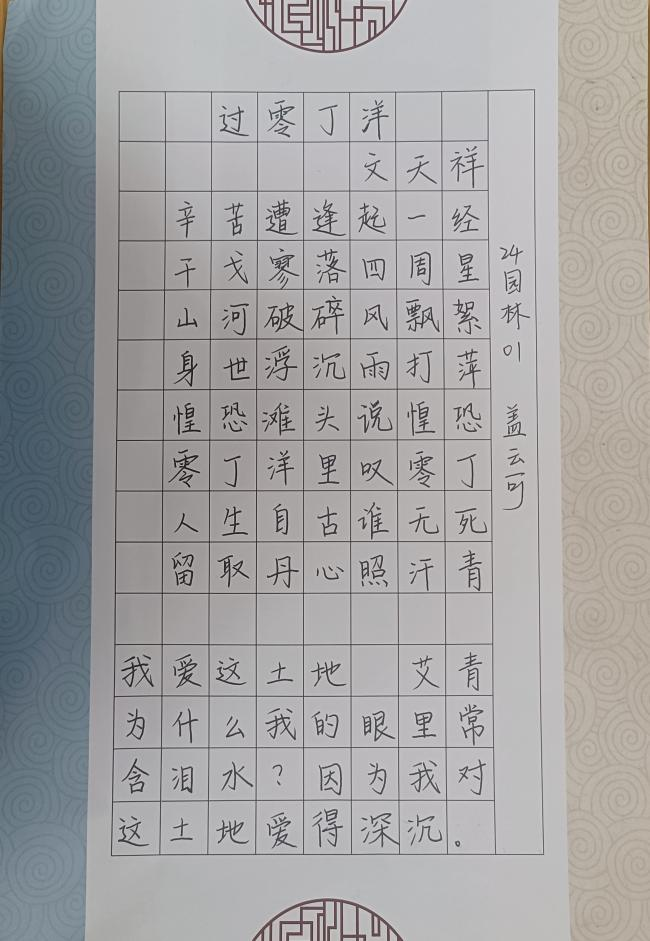 过零丁洋
文天祥
辛苦遭逢起一经
干戈寥落四周星
山河破碎风飘絮
身世浮沉雨打萍
惶恐滩头说惶恐
零丁洋里叹零丁
人生自古谁无死
留取丹心照汗青
我爱这土地 艾青
为什么我的眼里常
含泪水?因为我对
这土地爱得深沉。
24园林01 盖云可